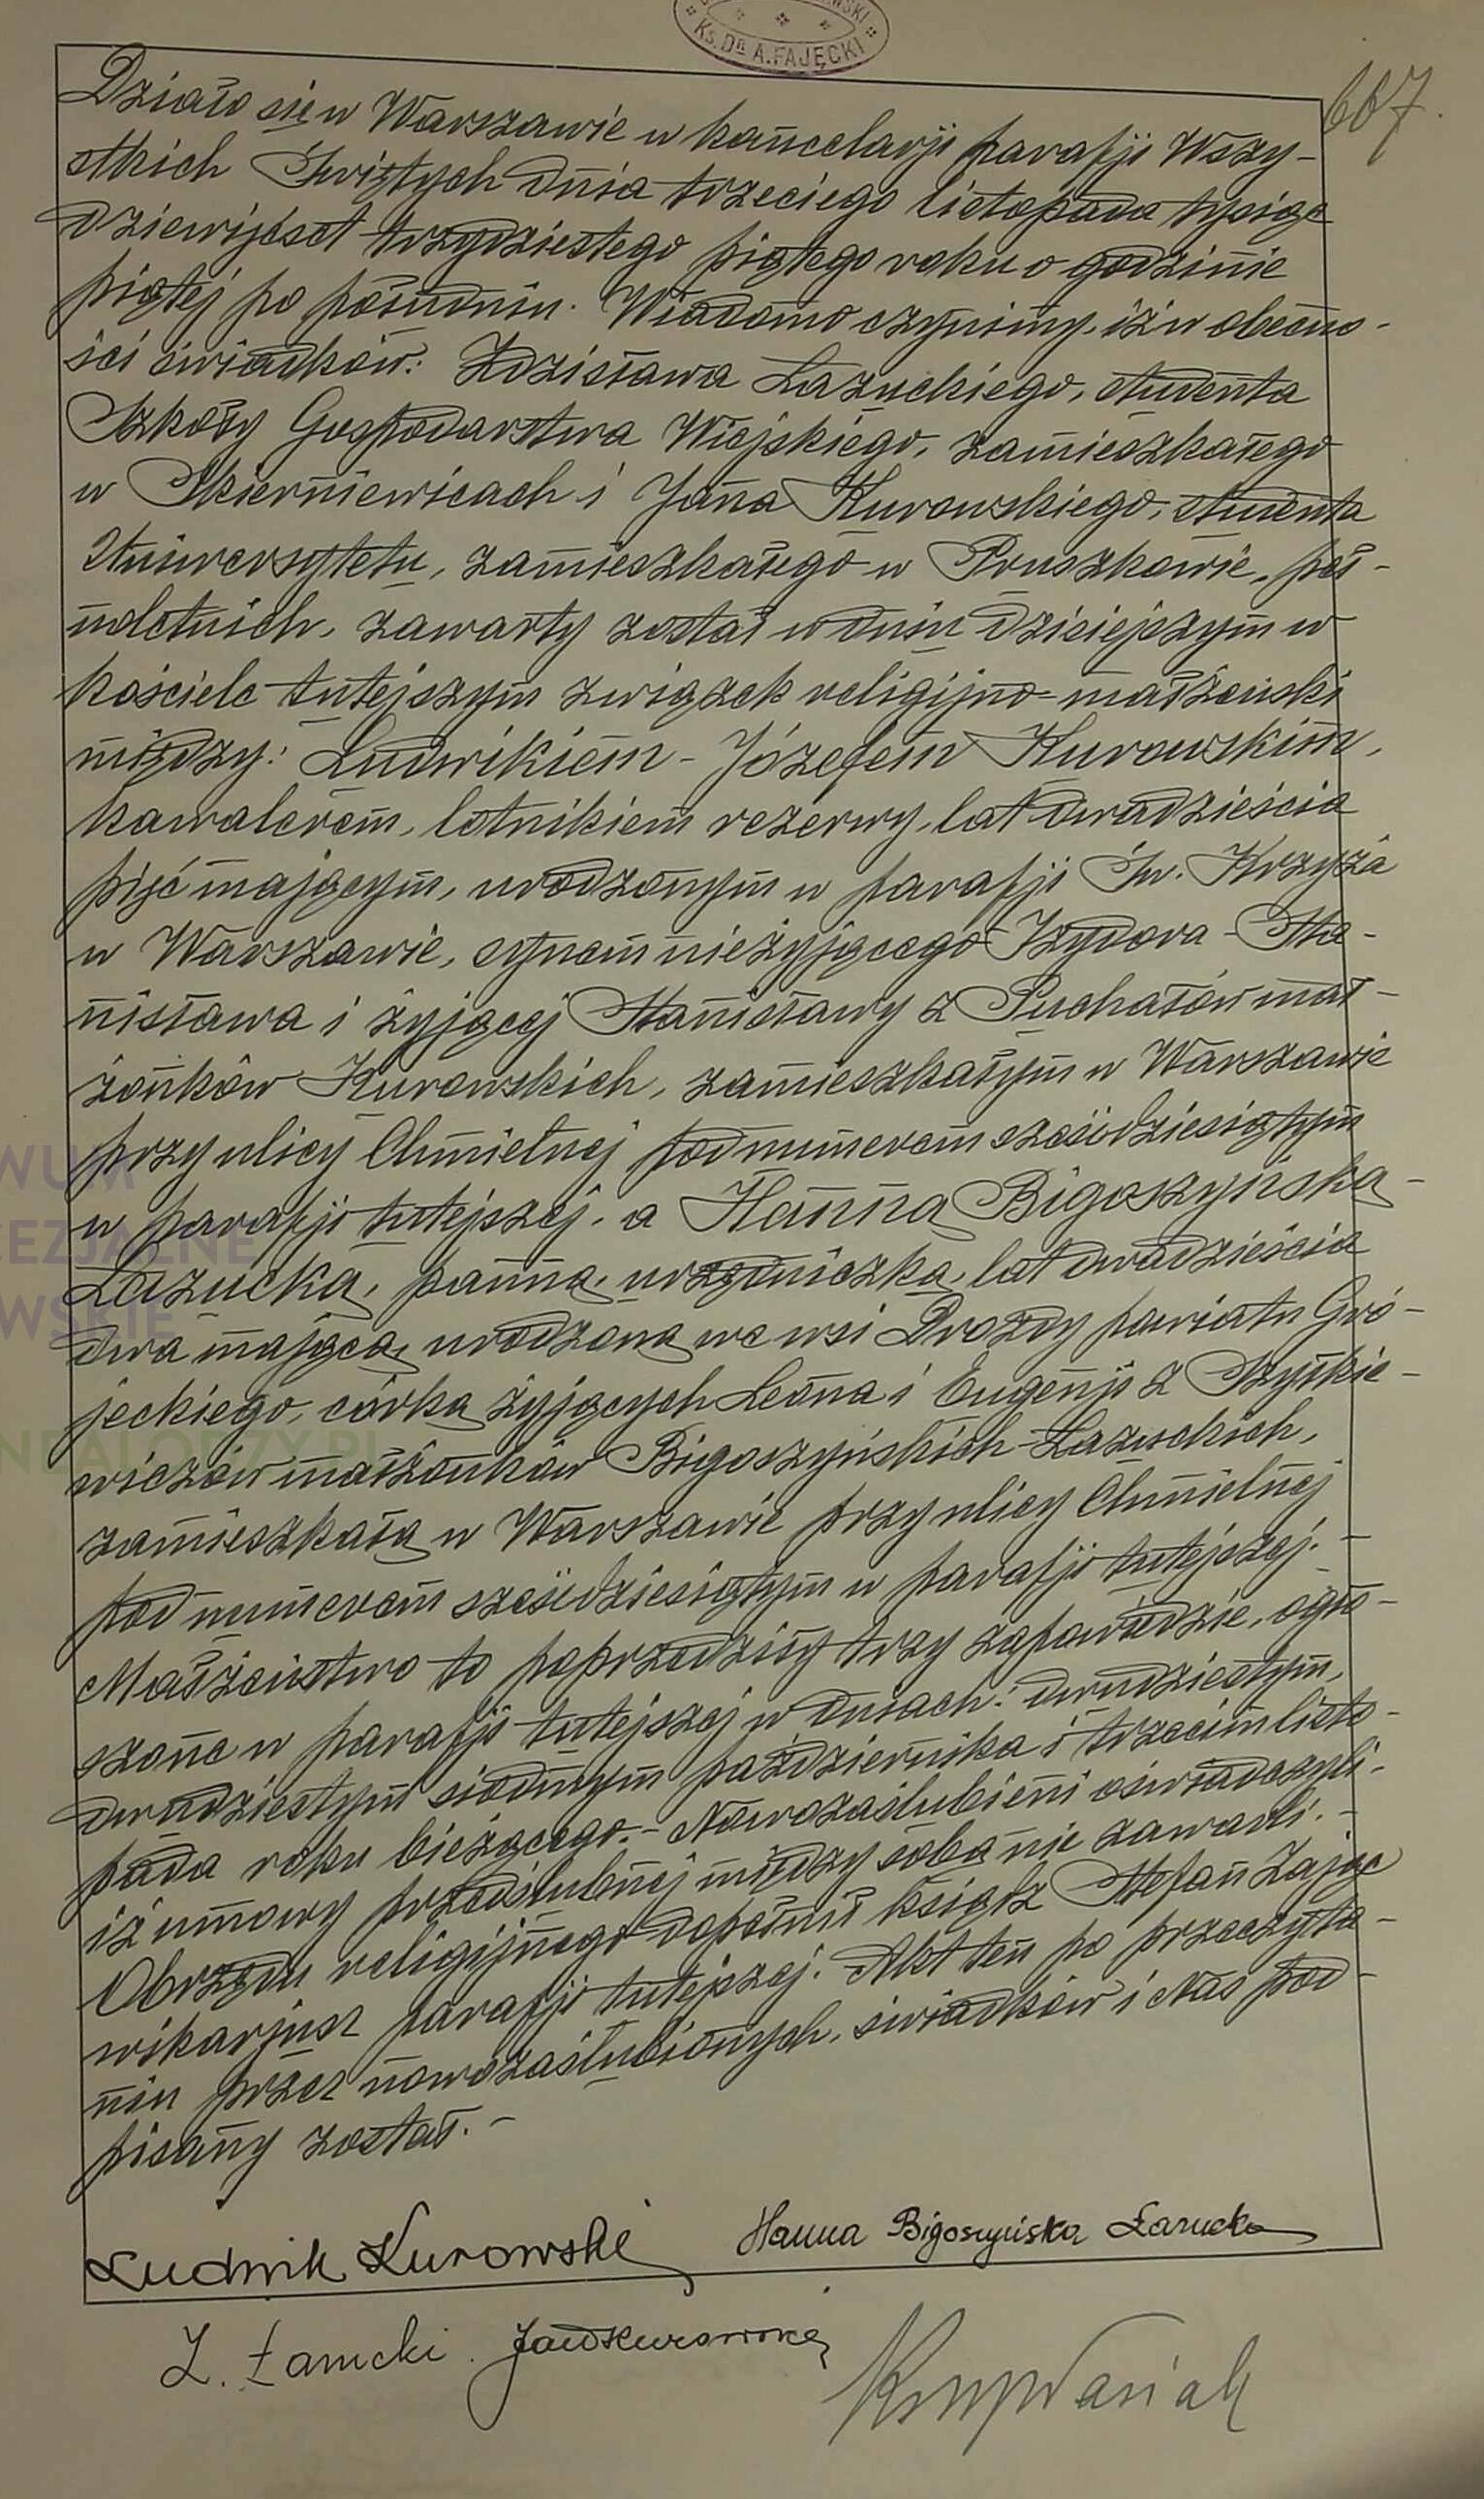 KS. DR A. FAJĘCKI
667.
Działo się w Warszawie w kancelarji parafji Wszy-
stkich Świętych dnia trzeciego listopada tysiąc
dziewięćset trzydziestego piątego roku o godzinie
piątej po południu. Wiadomo czynimy, iż w obecno-
ści świadków: Zdzisława Łazuckiego, studenta
Szkoły Gospodarstwa Wiejskiego, zamieszkałego
w Skierniewicach i Jana Kurowskiego, studenta
Uniwersytetu, zamieszkałego w Pruszkowie, peł-
noletnich, zawarty został w dniu dzisiejszym w
kościele tutejszym związek religijno-małżeński
między: Ludwikiem-Józefem Kurowskim,
kawalerem, lotnikiem rezerwy, lat dwadzieścia
pięć mającym, urodzonym w parafji Św. Krzyża
w Warszawie, synem nieżyjącego Izydora-Sta-
nisława i żyjącej Stanisławy z Puchałów mał-
żonków Kurowskich, zamieszkałym w Warszawie
przy ulicy Chmielnej pod numerem sześćdziesiątym
w parafji tutejszej, a Hanną Bigoszyńską-
Łazucką, panną, urzędniczką, lat dwadzieścia
dwa mającą, urodzoną we wsi Drozdy powiatu Gró-
jeckiego, córką żyjących Leona i Eugenji z Szyszkie-
wiczów małżonków Bigoszyńskich-Łazuckich,
zamieszkałą w Warszawie przy ulicy Chmielnej
pod numerem sześćdziesiątym w parafji tutejszej.-
Małżeństwo to poprzedziły trzy zapowiedzie, ogło-
szone w parafji tutejszej w dniach: dwudziestym,
dwudziestym siódmym października i trzecim listo-
pada roku bieżącego.- Nowozaślubieni oświadczyli,
iż umowy przedślubnej między sobą nie zawarli.-
Obrzędu religijnego dopełnił ksiądz Stefan Zając
wikarjusz parafji tutejszej. Akt ten po przeczyta-
niu przez nowozaślubionych, świadków i Nas pod-
pisany został.-
Ludwik Kurowski Hanna Bigoszyńska Łazucka
Z. Łazucki. Jan Kurowski